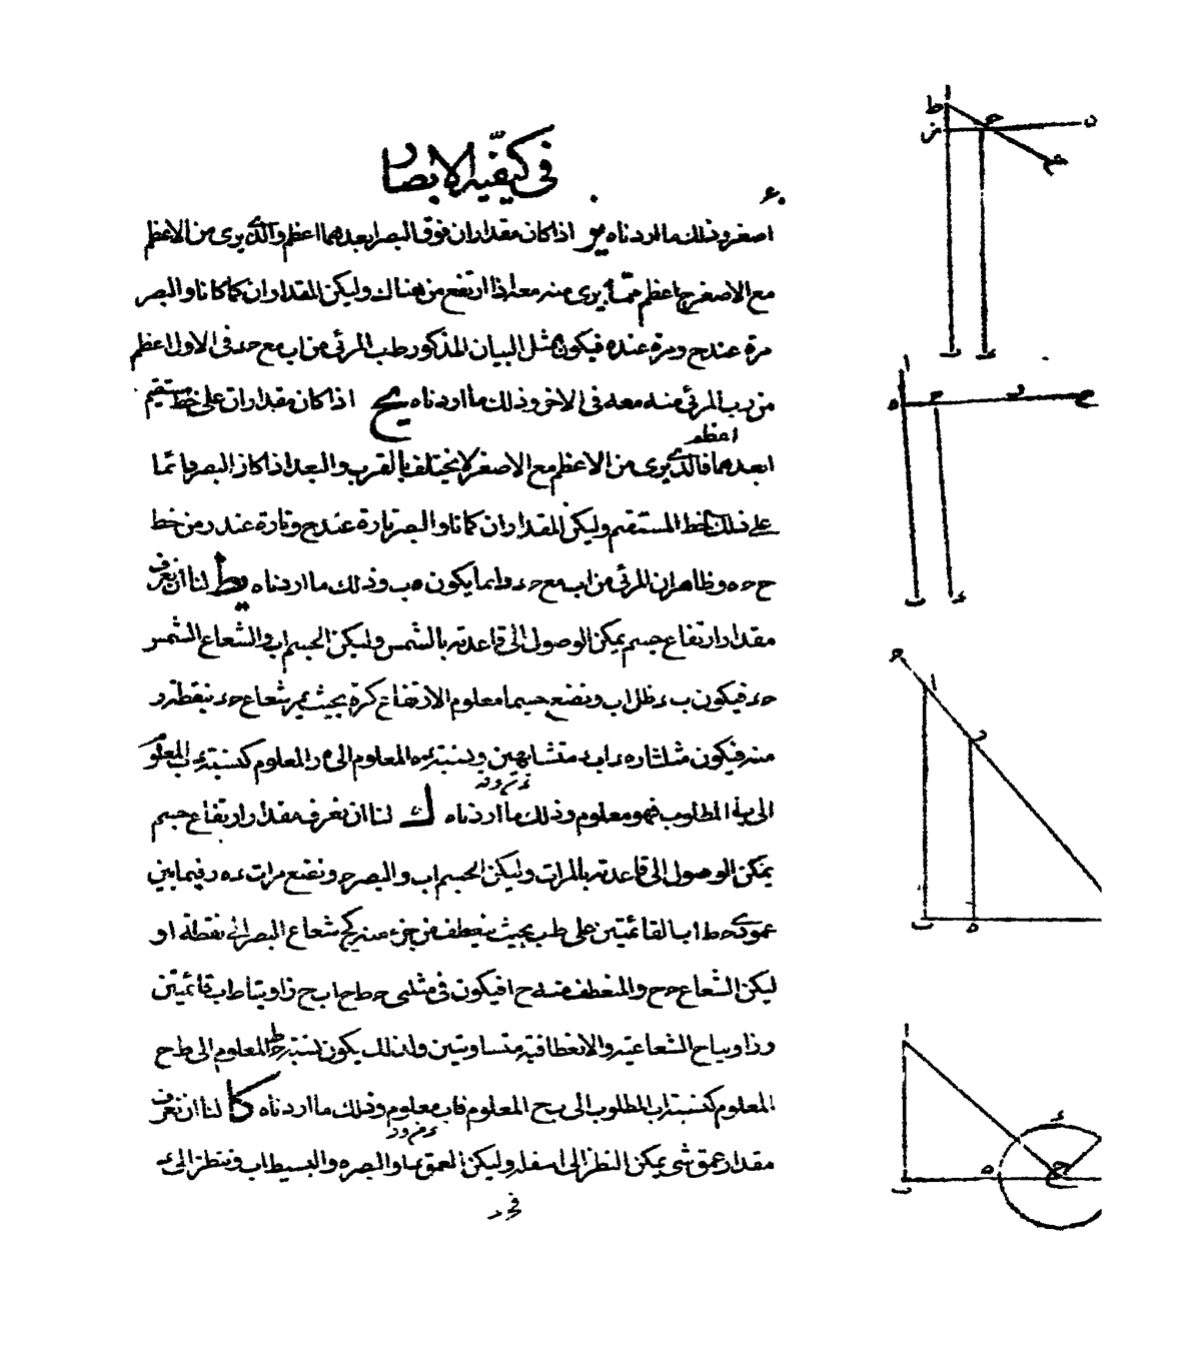 في كيفية الابصار
اصغر وذلك ما اردناه يز اذا كان مقداران فوق البصر ابعدهما اعظم والذي يرى من الاعظم
مع الاصغر ح اعظم مما يرى منه معه اذا ارتفع من هناك وليكن المقداران كما كانا والبصر
مرة عند ح ومرة عند ه فيكون بمثل البيان المذكور ط ب المرئي من ا ب مع ح د في الاول اعظم
من ر ب المرئي منه معه في الاخر وذلك ما اردناه يح اذا كان مقداران على خط مستقيم
اعظم
ابعدهما فالذي يرى من الاعظم مع الاصغر لا يختلف بالقرب والبعد اذا كان البصر دائما
على ذلك الخط المستقيم وليكن المقداران كما كانا والبصر تارة عند ح وتارة عند ر من خط
ح ح ه وظاهر ان المرئي من ا ب مع ح د دائما يكون ه ب وذلك ما اردناه يط لنا ان نعرف
مقدار ارتفاع جسم يمكن الوصول الى قاعدته بالشمس وليكن الجسم ا ب والشعاع الشمس
ح د فيكون ب د ظل ا ب ونضع جسما معلوم الارتفاع كره بحيث يمر شعاع ح د بنقطة ر
منه فيكون مثلثا ر ه د ا ب د متشابهين ونسبة د ه المعلوم الى ه ر المعلوم كنسبة د ب المعلو
الى ب ا المطلوب فهو معلوم وذلك ما اردناه ك لنا ان نعرف مقدار ارتفاع جسم
يمكن الوصول الى قاعدته بالمرات وليكن الجسم ا ب والبصر ح ونضع مرات د ه ر فيما بين
عمودي ح ط ا ب القائمتين على ط ب بحيث ينعطف من جزء منه كح شعاع البصر الى نقطة ا و
ليكن الشعاع ح ح والمنعطف منه ح ا فيكون في مثلثي ح ط ح ا ب ح زاويتا ط ب قائمتين
وزاويتا ح الشعاعية والانعطافية متساويتين ولذلك يكون نسبة ح ط المعلوم الى ط ح
المعلوم كنسبة ا ب المطلوب الى ب ح المعلوم فا ب معلوم وذلك ما اردناه كا لنا ان نعرف
مقدار عمق شي يمكن النظر الى اسفله وليكن العمق ب ا والبصر ه والبسيط ا ب وننظر الى د
ا
ط
ز
ح
ن
ب
د
ا
ه
ح
ر
ح
ب
د
ح
ا
ر
ب
ه
ا
د
ه
ح
ب